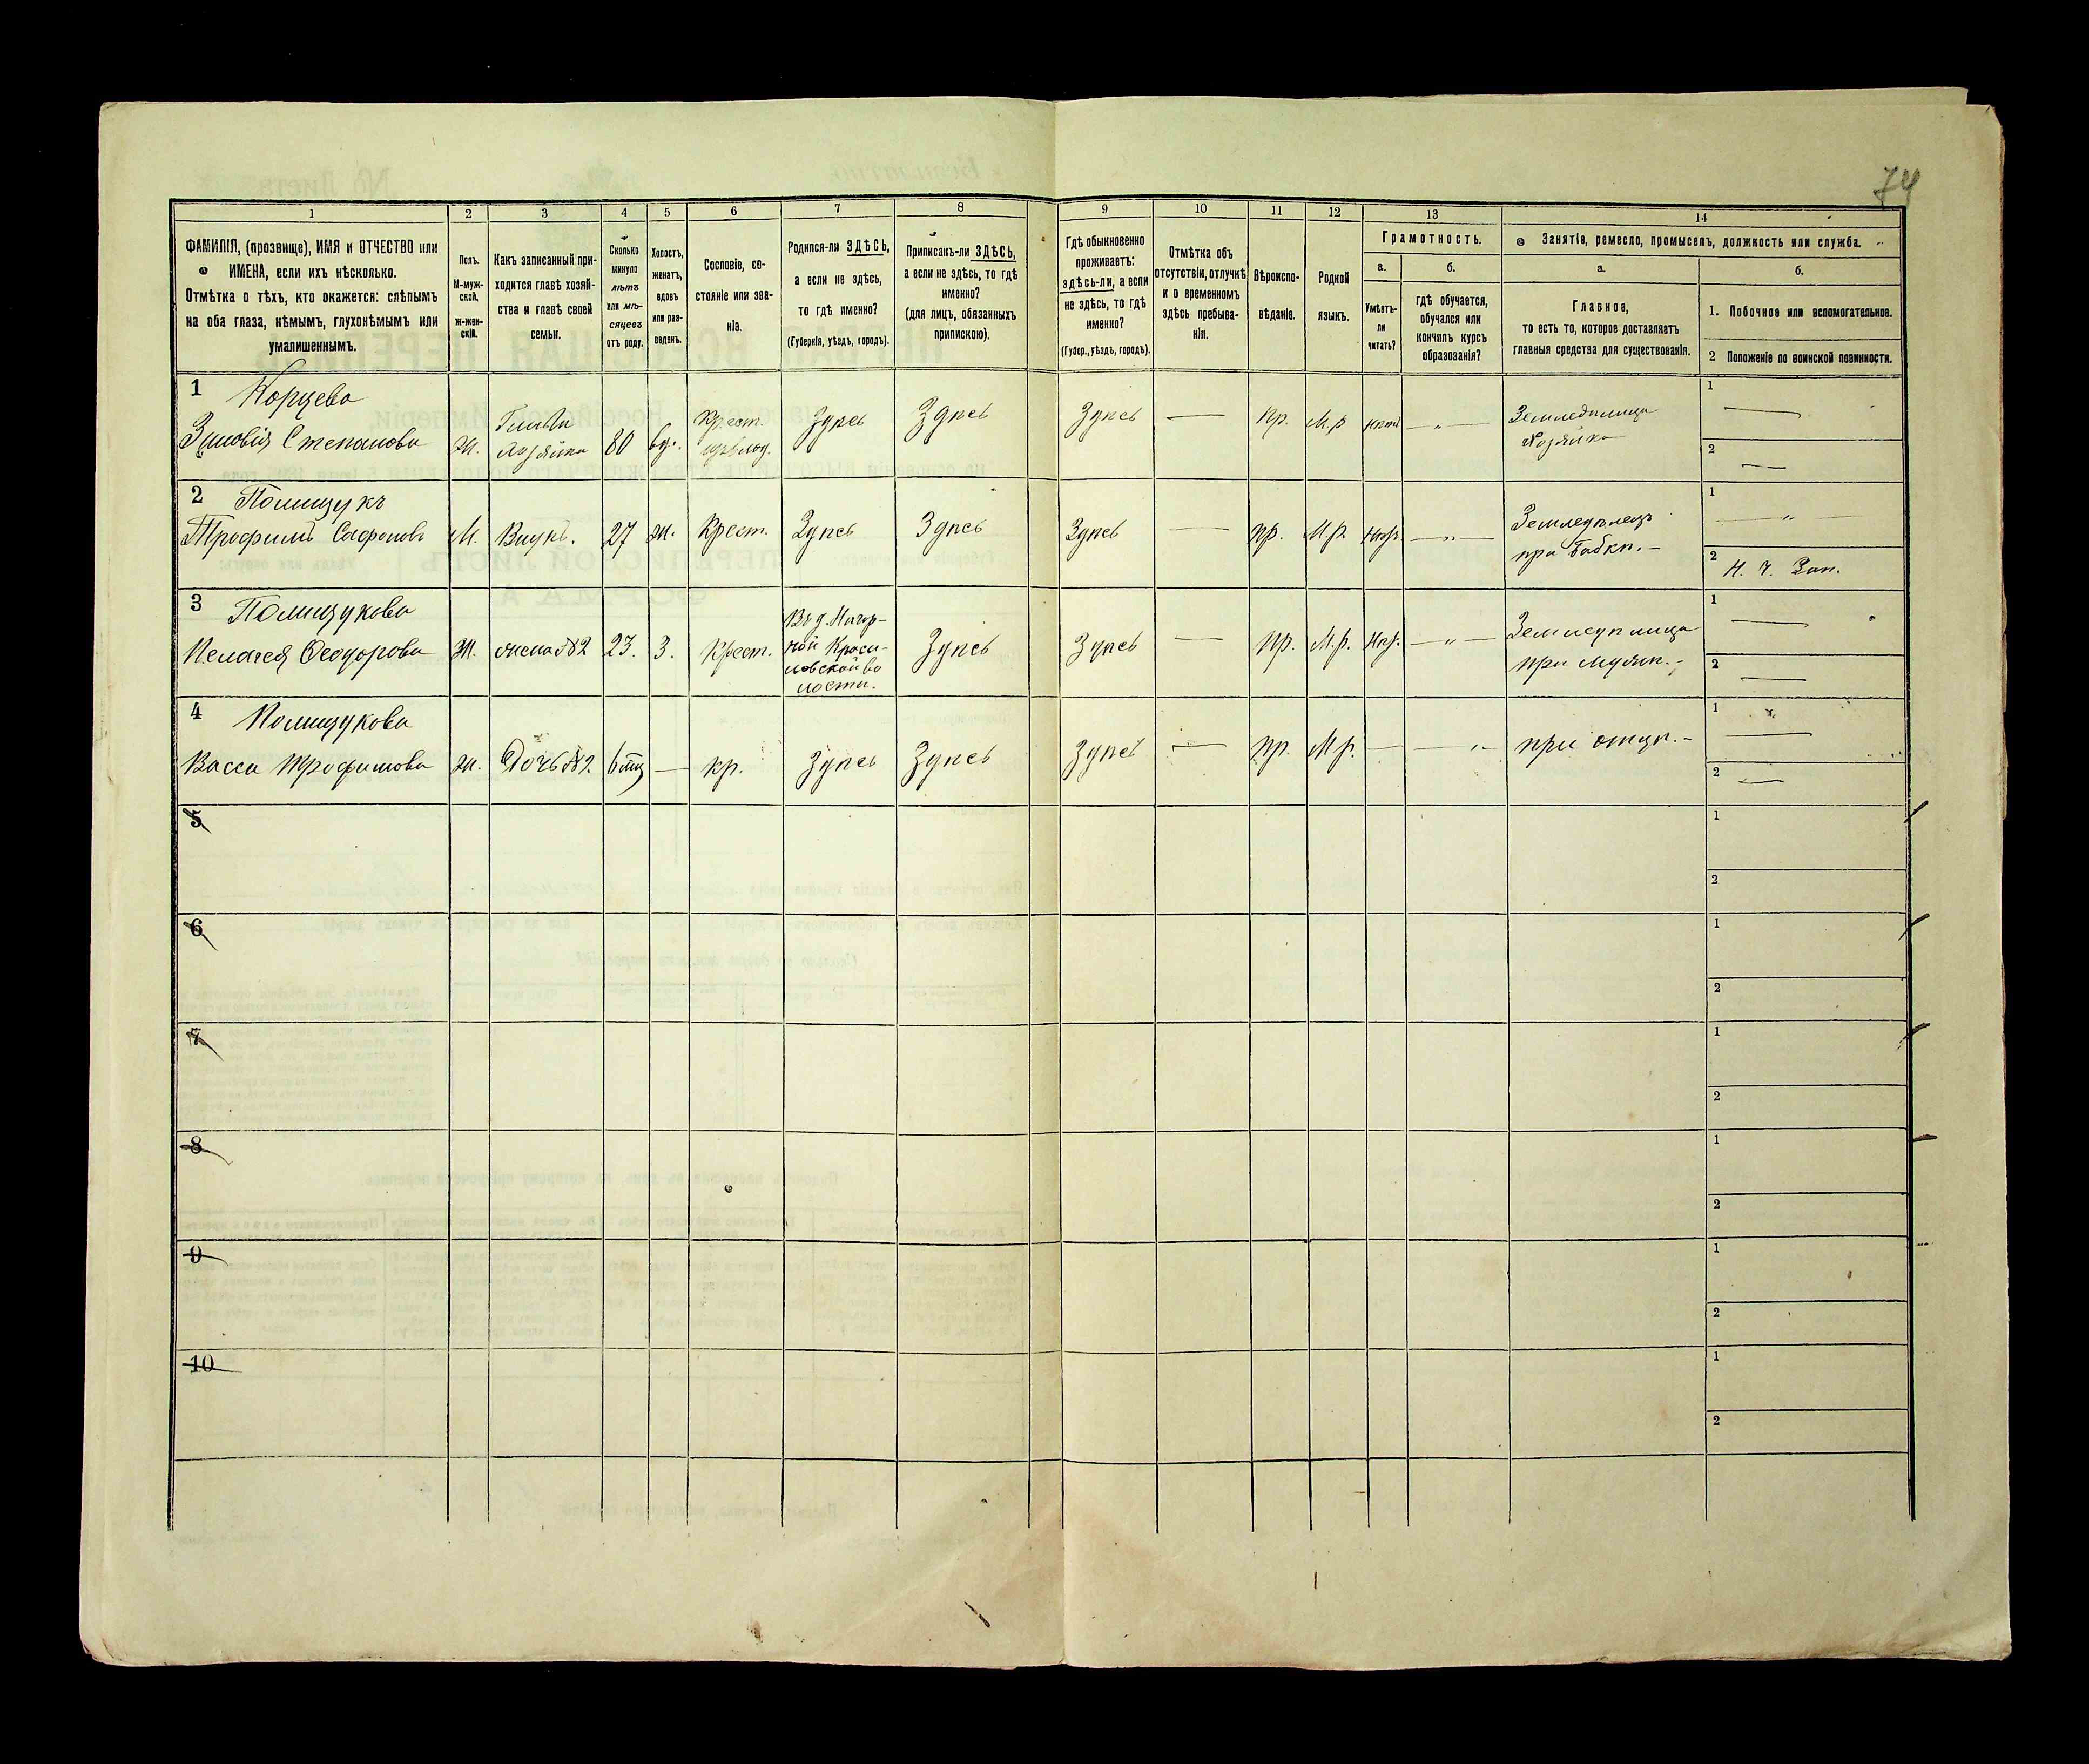 74
1 2 3 4 5 6 7 8 9 10 11 12 13 14
ФАМИЛІЯ, (прозвище), ИМЯ и ОТЧЕСТВО или
ИМЕНА, если ихъ нѣсколько.
Отмѣтка о тѣхъ, кто окажется: слѣпымъ
на оба глаза, нѣмымъ, глухонѣмымъ или
умалишеннымъ.
Полъ.
М-муж-
ской,
ж-жен-
скій.
Какъ записанный при-
ходится главѣ хозяй-
ства и главѣ своей
семьи.
Сколько
минуло
лѣтъ
или мѣ-
сяцевъ
отъ роду.
Холостъ,
женатъ,
вдовъ
или раз-
веденъ.
Сословіе, со-
стояніе или зва-
ніе.
Родился-ли ЗДѢСЬ,
а если не здѣсь,
то гдѣ именно?
(Губернія, уѣздъ, городъ).
Приписанъ-ли ЗДѢСЬ,
а если не здѣсь, то гдѣ
именно?
(для лицъ, обязанныхъ
припискою).
Гдѣ обыкновенно
проживаетъ:
здѣсь-ли, а если
не здѣсь, то гдѣ
именно?
(Губер., уѣздъ, городъ).
Отмѣтка объ
отсутствіи, отлучкѣ
и о временномъ
здѣсь пребыва-
ніи.
Вѣроиспо-
вѣданіе.
Родной
языкъ.
Грамотность.
а.
Умѣетъ-
ли
читать?
б.
гдѣ обучается,
обучался или
кончилъ курсъ
образованія?
Занятія, ремесло, промыселъ, должность или служба.
а.
Главное,
то есть то, которое доставляетъ
главныя средства для существованія.
б.
1. Побочное или вспомогательное.
2 Положеніе по воинской повинности.
1
Корцева
Зиновія Степанова
ж.
Глава
хозяйка
80
вд.
Крест.
Здѣсь
Здѣсь
Здѣсь
—
пр.
М.р
нѣтъ
— „ —
Земледѣлица
хозяйка
1 —
2 —
2
Полищукъ
Трофимъ Сафоновъ
М.
Внукъ.
27
ж.
Крест.
Здѣсь
Здѣсь
Здѣсь
—
пр.
М.р.
— „ —
Земледѣлецъ
при бабкѣ. —
1 — „ —
2 Н. Ч. Зап.
3
Полищукова
Пелагея Ѳеодорова
Ж.
жена №2
23.
З.
Крест.
Въ д. Нагор-
ной Краси-
ловской во
лости.
Здѣсь
Здѣсь
—
пр.
М.р.
— „ —
Земледѣлица
при мужѣ. —
1 —
2 —
4
Полищукова
Васса Трофимова
ж.
Дочь №2.
—
кр.
Здѣсь
Здѣсь
Здѣсь
—
пр.
М р.
—
— „ —
при отцѣ. —
1 —
2 —
5
1
2
6
1
2
7
1
2
8
1
2
9
1
2
10
1
2